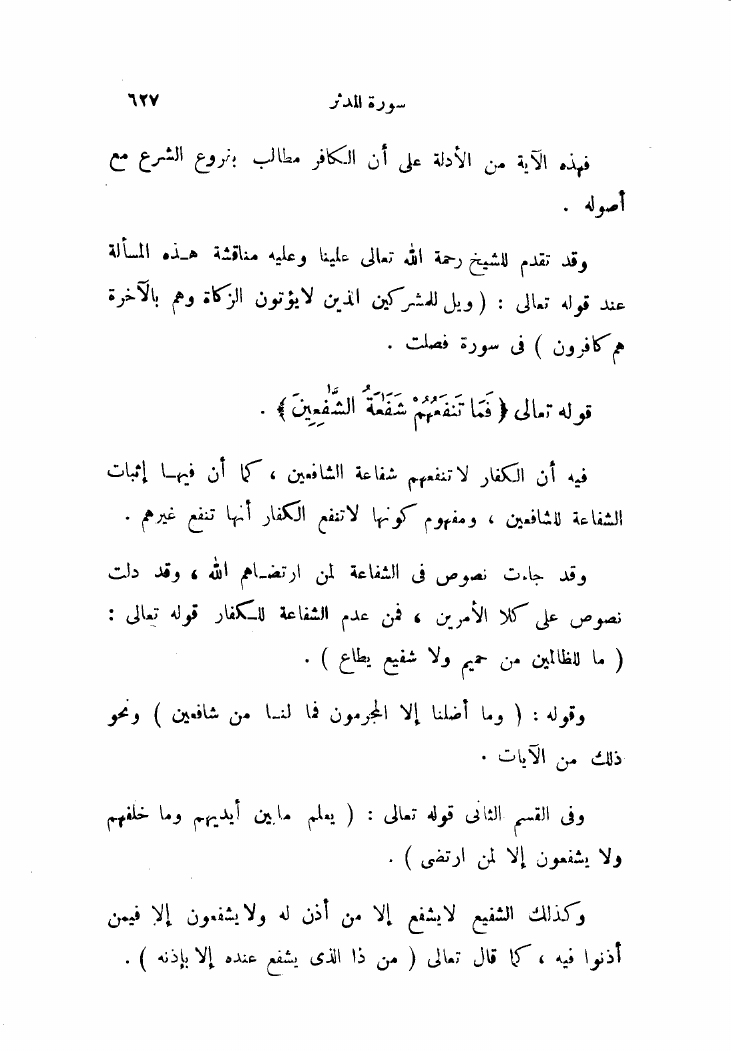 سورة المدثر ٦٢٧
فهذه الآية من الأدلة على أن الكافر مطالب بفروع الشرع مع
أصوله .
وقد تقدم للشيخ رحمة الله تعالى علينا وعليه مناقشة هـذه المسألة
عند قوله تعالى : ( وويل للمشركين الذين لا يؤتون الزكاة وهم بالآخرة
هم كافرون ) فى سورة فصلت .
قوله تعالى ﴿ فَمَا تَنفَعُهُمْ شَفَٰعَةُ الشَّٰفِعِينَ ﴾ .
فيه أن الكفار لا تنفعهم شفاعة الشافعين ، كما أن فيها إثبات
الشفاعة للشافعين ، ومفهوم كونها لا تنفع الكفار أنها تنفع غيرهم .
وقد جاءت نصوص فى الشفاعة لمن ارتضاهم الله ، وقد دلت
نصوص على كلا الأمرين ، فمن عدم الشفاعة للكفار قوله تعالى :
( ما للظالمين من حميم ولا شفيع يطاع ) .
وقوله : ( وما أضلنا إلا المجرمون فما لنا من شافعين ) ونحو
ذلك من الآيات .
وفى القسم الثانى قوله تعالى : ( يعلم ما بين أيديهم وما خلفهم
ولا يشفعون إلا لمن ارتضى ) .
وكذلك الشفيع لا يشفع إلا من أذن له ولا يشفعون إلا فيمن
أذنوا فيه ، كما قال تعالى ( من ذا الذى يشفع عنده إلا بإذنه ) .